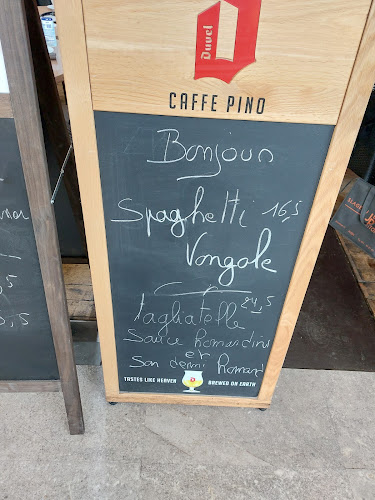 Duvel
CAFFE PINO
Bonjour
Spaghetti 16,5
Vongole
Tagliatelle 24,5
Sauce Homardine
et
Son demi Homard
TASTES LIKE HEAVEN BREWED ON EARTH